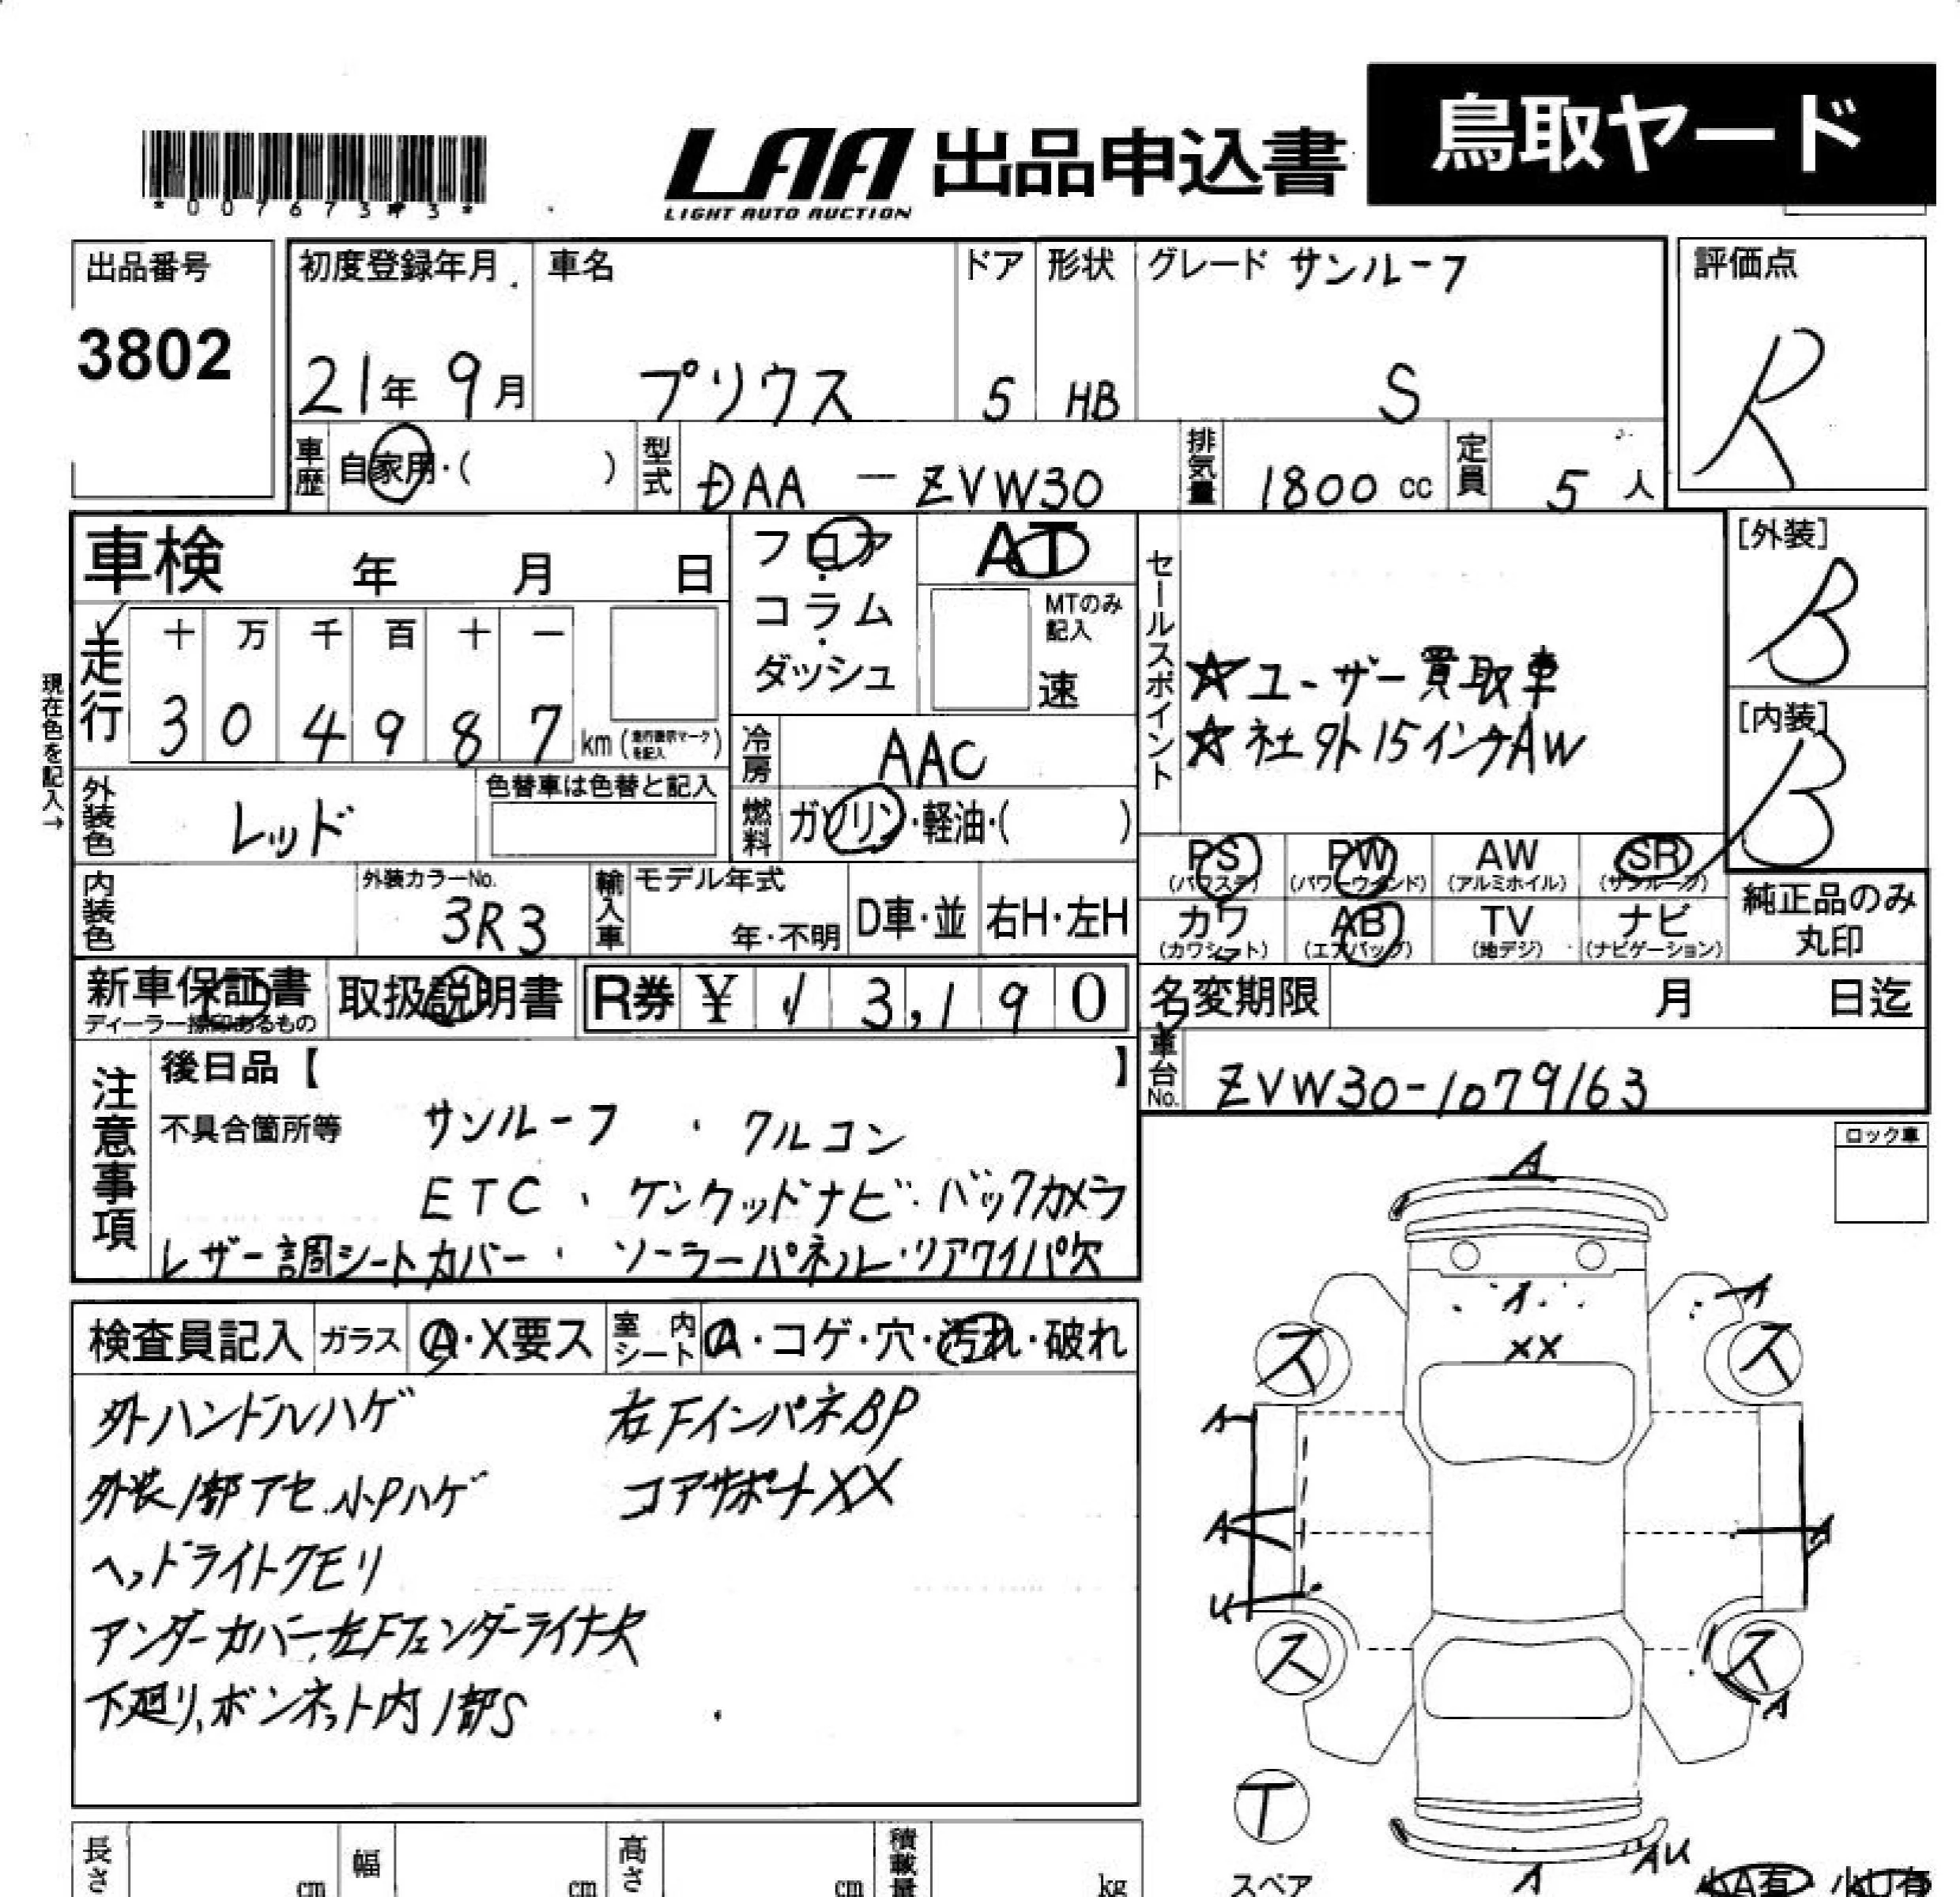 鳥取ヤード
LAA 出品申込書
LIGHT AUTO AUCTION
出品番号
3802
初度登録年月
21年 9月
車名
プリウス
ドア
5
形状
HB
グレード サンルーフ
S
評価点
R
車歴 自家用・( )
型式 DAA - ZVW30
排気量 1800 cc
定員 5 人
車検 年 月 日
フロア・コラム・ダッシュ
AT
MTのみ記入
速
セールスポイント
☆ユーザー買取車
☆社外15インチAW
[外装]
B
[内装]
B
現在色を記入→
走行
十 万 千 百 十 一
3 0 4 9 8 7 km (走行表示マークを記入)
冷房 AAC
燃料 ガソリン・軽油・( )
外装色 レッド
色替車は色替と記入
内装色
外装カラーNo.
3R3
輸入車
モデル年式
年・不明
D車・並
右H・左H
PS (パワステ)
PW (パワーウィンド)
AW (アルミホイル)
SR (サンルーフ)
カワ (カワシート)
AB (エアバッグ)
TV (地デジ)
ナビ (ナビゲーション)
純正品のみ丸印
新車保証書
ディーラー捺印あるもの
取扱説明書
R券 ¥ 13,190
名変期限 月 日迄
車台No. ZVW30-1079163
注意事項
後日品【 】
不具合箇所等
サンルーフ・クルコン
ETC・ケンウッドナビ・バックカメラ
レザー調シートカバー・ソーラーパネル・リアワイパ欠
ロック車
検査員記入
ガラス A・X要ス
室内シート A・コゲ・穴・汚れ・破れ
外ハンドルハゲ
外装1部アセ、小Pハゲ
ヘッドライトクモリ
アンダーカバー、左Fフェンダーライナ欠
下廻り、ボンネット内1部S
右FインパネBP
コアサポートXX
A
A
XX
A
ス
ス
A
A
A
U
ス
ス
A
T
スペア
A
AU
小A有・小U有
長さ cm
幅 cm
高さ cm
積載量 kg